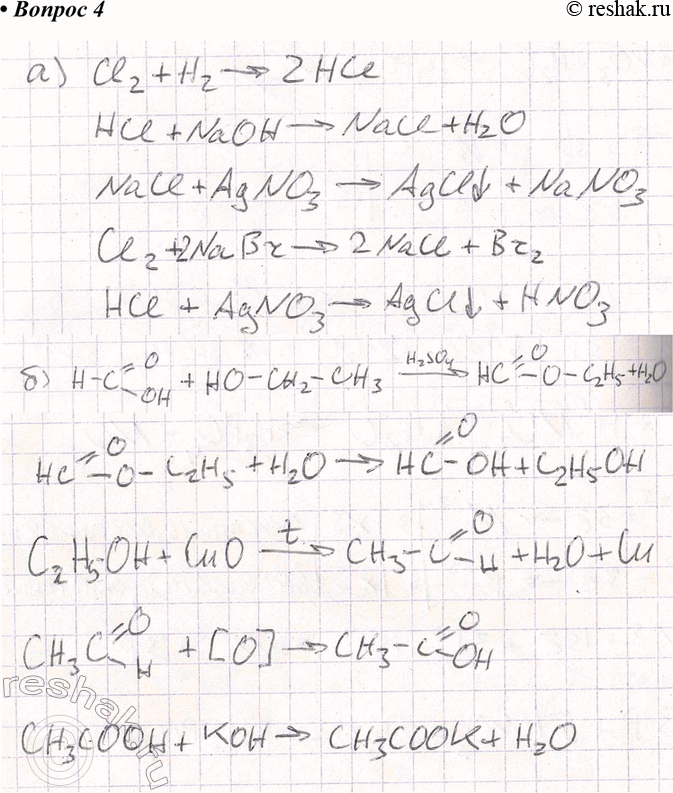 • Вопрос 4
© reshak.ru
а) Cl₂ + H₂ → 2HCl
HCl + NaOH → NaCl + H₂O
NaCl + AgNO₃ → AgCl↓ + NaNO₃
Cl₂ + 2NaBr → 2NaCl + Br₂
HCl + AgNO₃ → AgCl↓ + HNO₃
б) H-C(=O)-OH + HO-CH₂-CH₃ –H₂SO₄→ HC(=O)-O-C₂H₅ + H₂O
HC(=O)-O-C₂H₅ + H₂O → HC(=O)-OH + C₂H₅OH
C₂H₅OH + CuO –t→ CH₃-C(=O)-H + H₂O + Cu
CH₃C(=O)-H + [O] → CH₃-C(=O)-OH
reshak.ru
CH₃COOH + KOH → CH₃COOK + H₂O